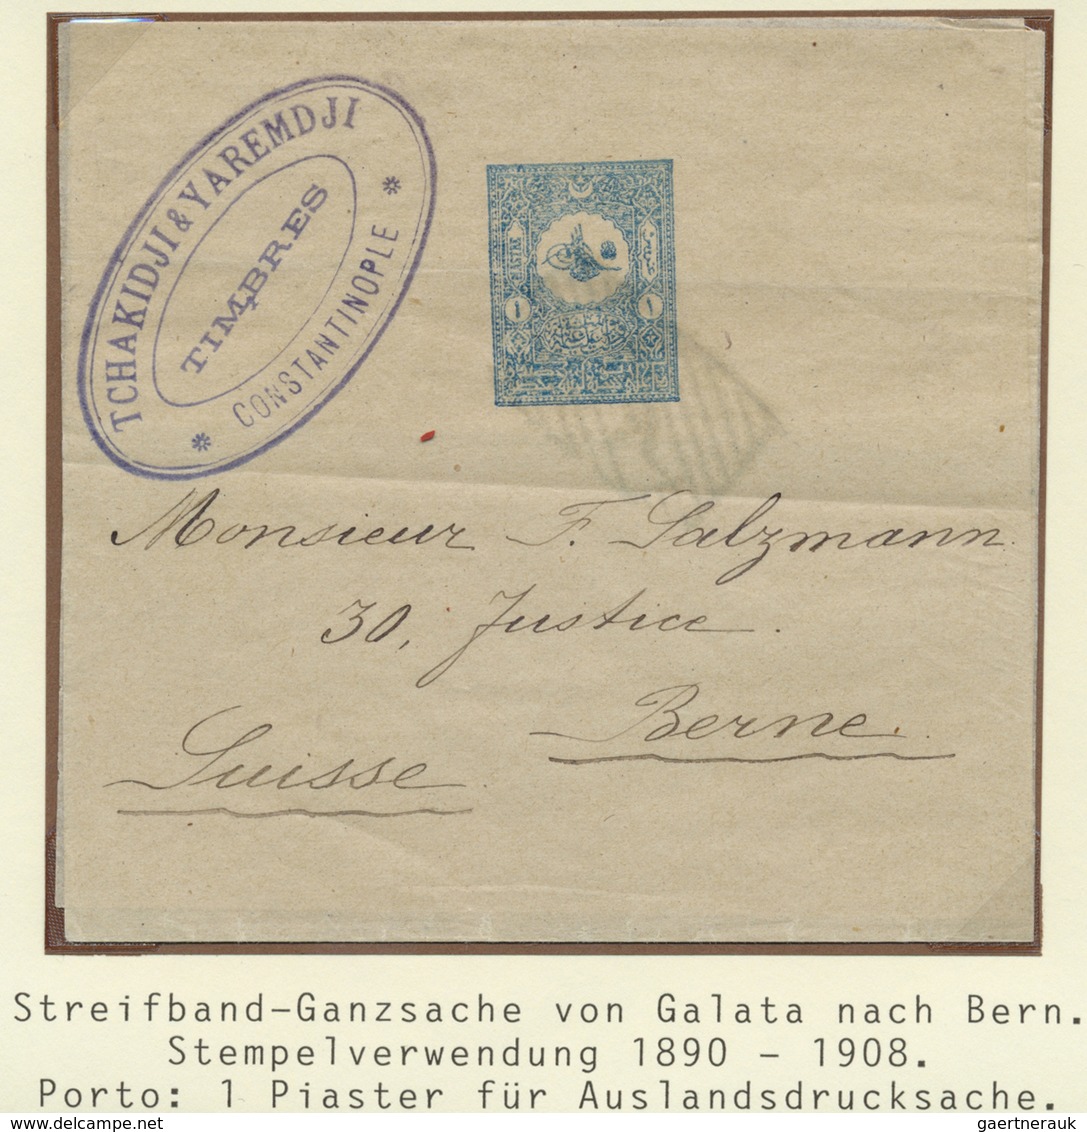 TCHAKIDJI & YAREMDJI
TIMBRES
* CONSTANTINOPLE *
PIASTRE
١ ١
Monsieur F. Salzmann
30, Justice.
Berne.
Suisse
Streifband-Ganzsache von Galata nach Bern.
Stempelverwendung 1890 - 1908.
Porto: 1 Piaster für Auslandsdrucksache.
gaertnerauk